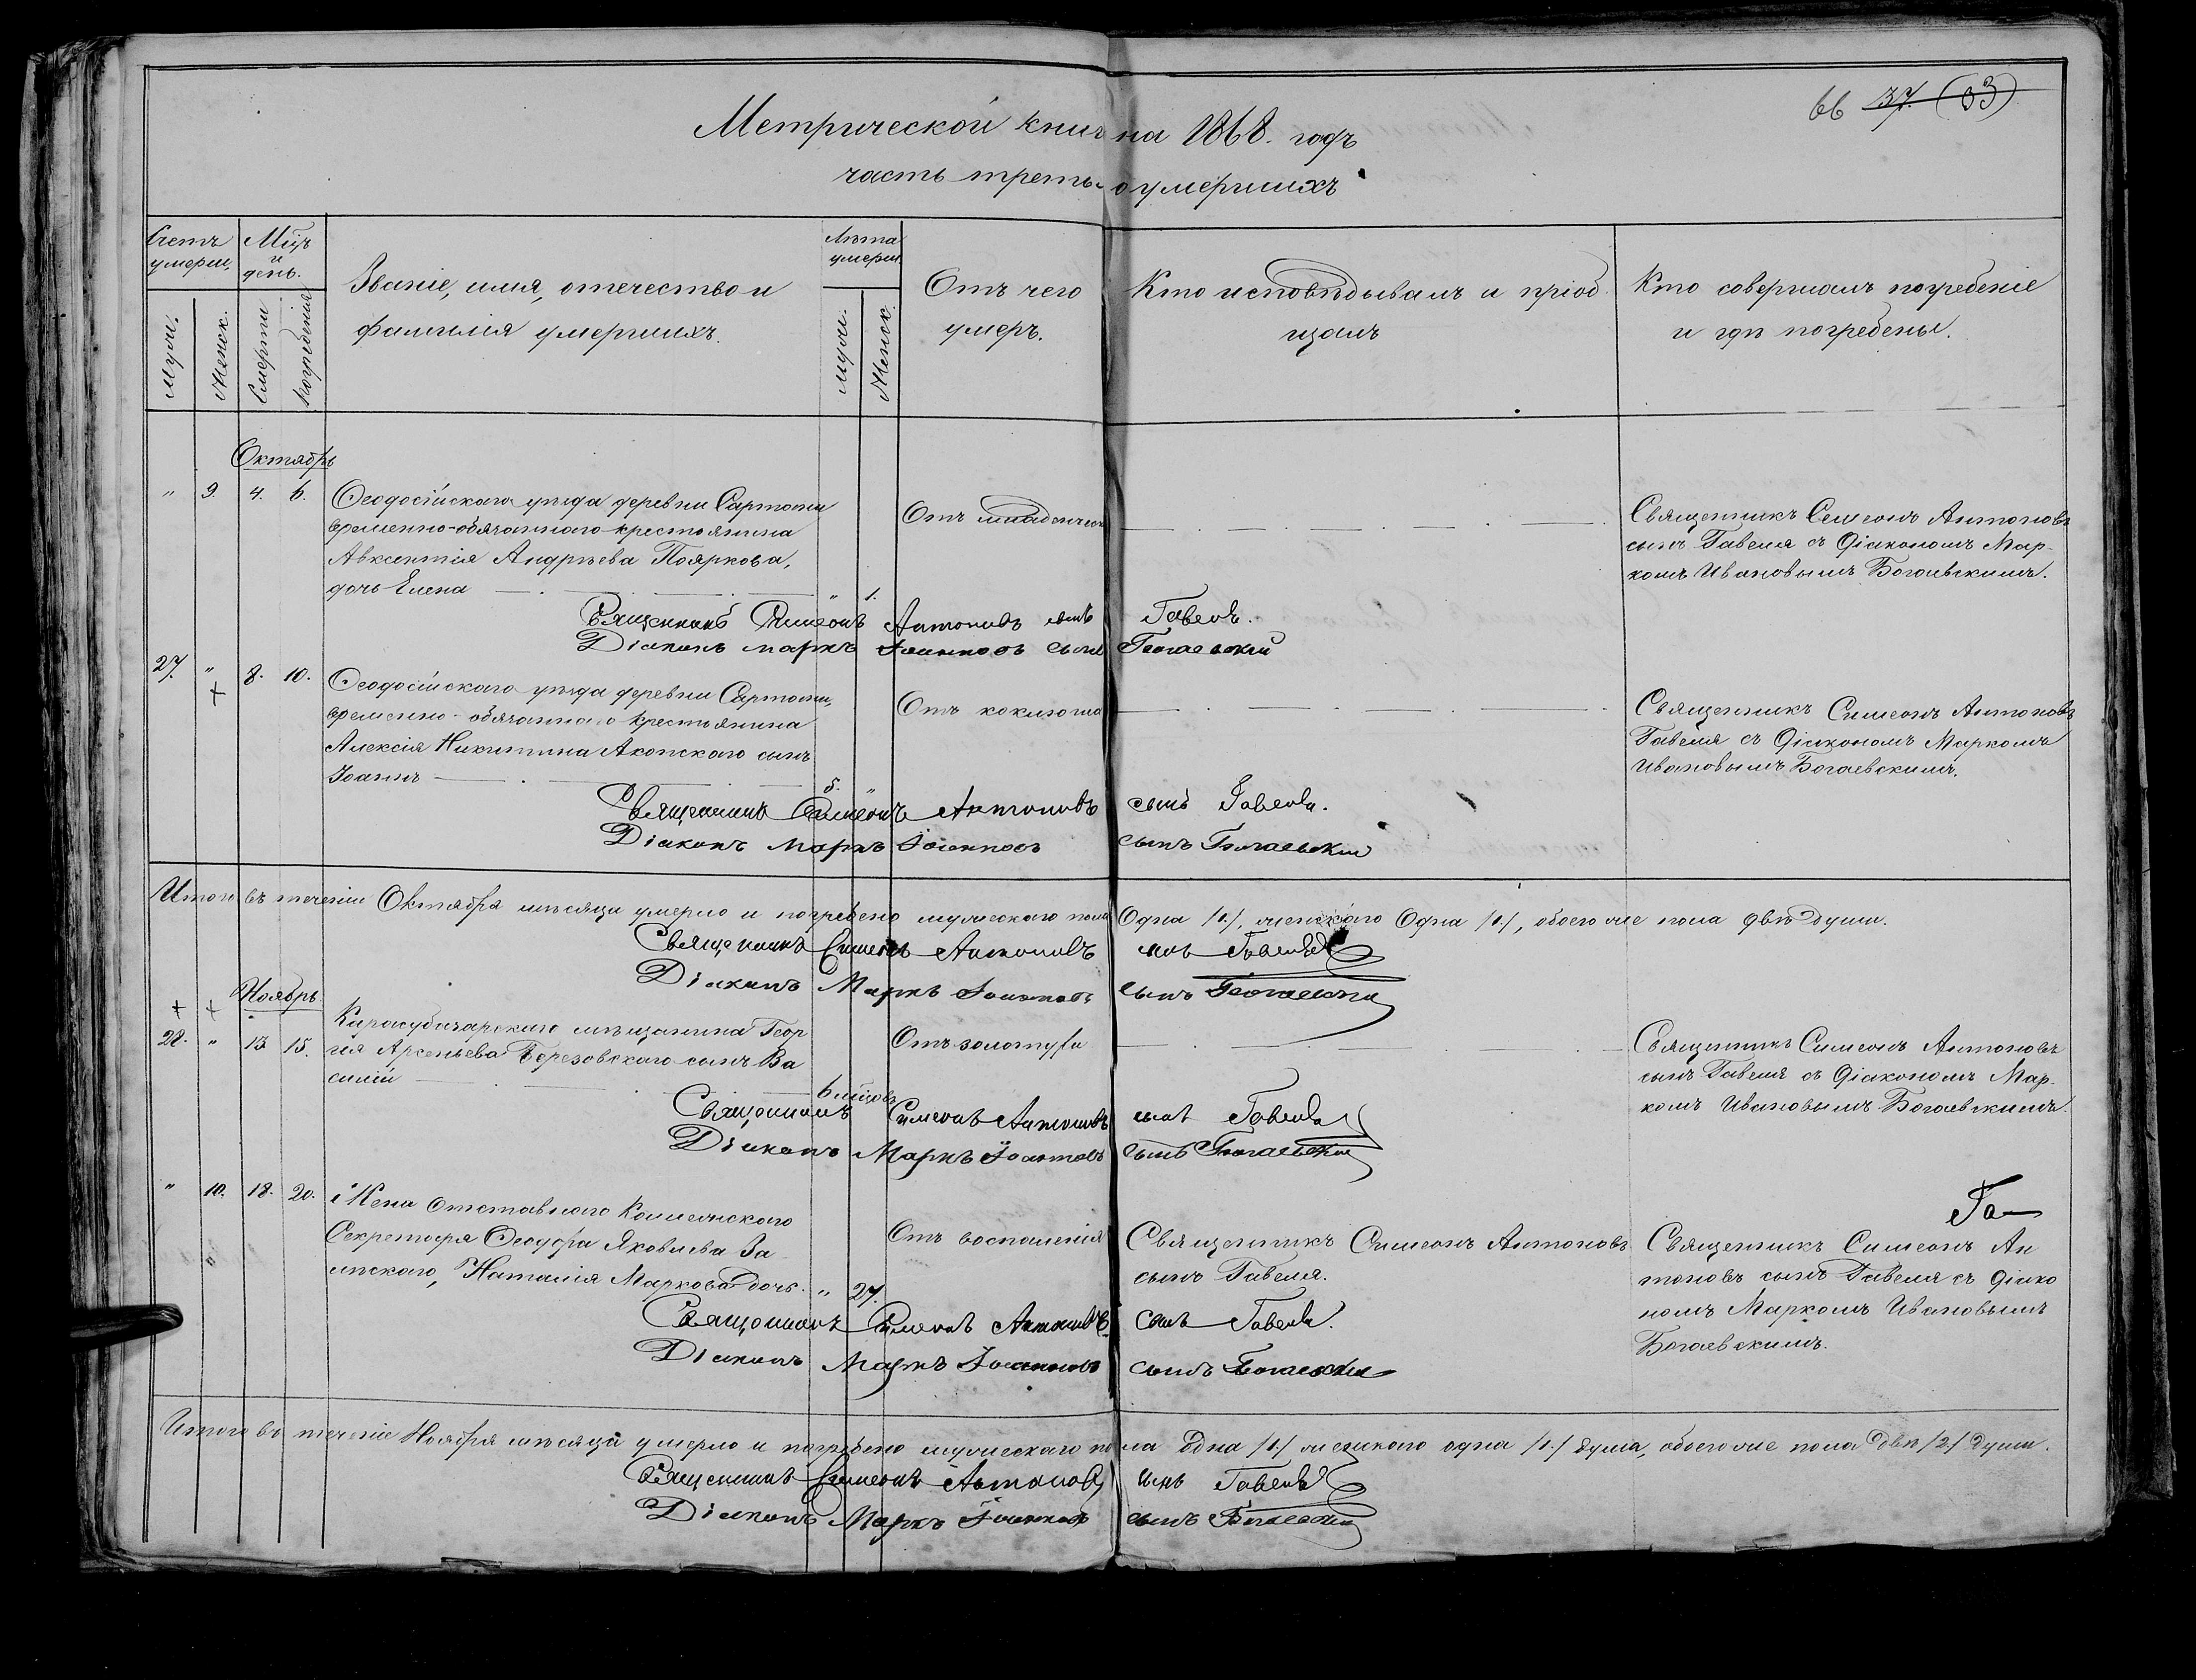 66 37. (33)
Метрической книг на 1868. годъ
часть треть о умершихъ
Счетъ умерш.
Мцъ и день.
Званіе, имя, отечество и фамилія умершихъ.
Лѣта умерш.
Отъ чего умеръ.
Кто исповѣдывалъ и пріоб
щалъ
Кто совершалъ погребеніе
и гдѣ погребены.
Муж.
Женск.
Смерти
Погребенія
Муж.
Женск.
Октябрь
" 9. 4. 6. Ѳеодосійскаго уѣзда деревни Сартаны
временно-обязаннаго крестьянина
Авксентія Андрѣева Пояркова,
дочь Елена " 1.
Отъ младенческ
Священникъ Симеонъ Антоновъ
сынъ Гавеля съ Діакономъ Мар-
комъ Ивановымъ Богаевскимъ.
Священникъ Симеонъ Антоновъ сынъ Гавеля.
Діаконъ Маркъ Іоанновъ сынъ Богаевскій
27. " 8. 10. Ѳеодосійскаго уѣзда деревни Сартаны,
временно-обязаннаго крестьянина
Алексія Никитина Акопскаго сынъ
Іоаннъ 5. "
Отъ коклюша
Священникъ Симеонъ Антоновъ
Гавеля съ Діакономъ Маркомъ
Ивановымъ Богаевскимъ.
Священникъ Симеонъ Антоновъ сынъ Гавеля.
Діаконъ Маркъ Іоанновъ сынъ Богаевскій
Итого въ теченіи Октября мѣсяца умерло и погребено мужескаго пола Одна /1./, женскаго Одна /1./, обоего же пола двѣ души.
Священникъ Симеонъ Антоновъ сынъ Гавеля
Діаконъ Маркъ Іоанновъ сынъ Богаевскій
Ноябрь
28. " 13 15. Карасубазарскаго мѣщанина Геор
гія Арсеньева Березовскаго сынъ Ва
силій 6 мцовъ
Отъ золотухи
Священникъ Симеонъ Антоновъ
сынъ Гавеля съ Діакономъ Мар-
комъ Ивановымъ Богаевскимъ.
Священникъ Симеонъ Антоновъ сынъ Гавеля
Діаконъ Маркъ Іоанновъ сынъ Богаевскій
" 10. 18. 20. Жена отставнаго Коллежскаго
Секретаря Ѳеодора Яковлева За
мѣскаго, Наталія Маркова дочь. " 27.
Отъ воспаленія
Священникъ Симеонъ Антоновъ
сынъ Гавеля.
Га
Священникъ Симеонъ Ан
тоновъ сынъ Гавеля съ Діако
номъ Маркомъ Ивановымъ
Богаевскимъ.
Священникъ Симеонъ Антоновъ сынъ Гавеля.
Діаконъ Маркъ Іоанновъ сынъ Богаевскій
Итого въ теченіе Ноября мѣсяца умерло и погребено мужескаго пола Одна /1./ женскаго одна /1./ душа, обоего же пола двѣ /2./ души.
Священникъ Симеонъ Антоновъ сынъ Гавеля
Діаконъ Маркъ Іоанновъ сынъ Богаевскій